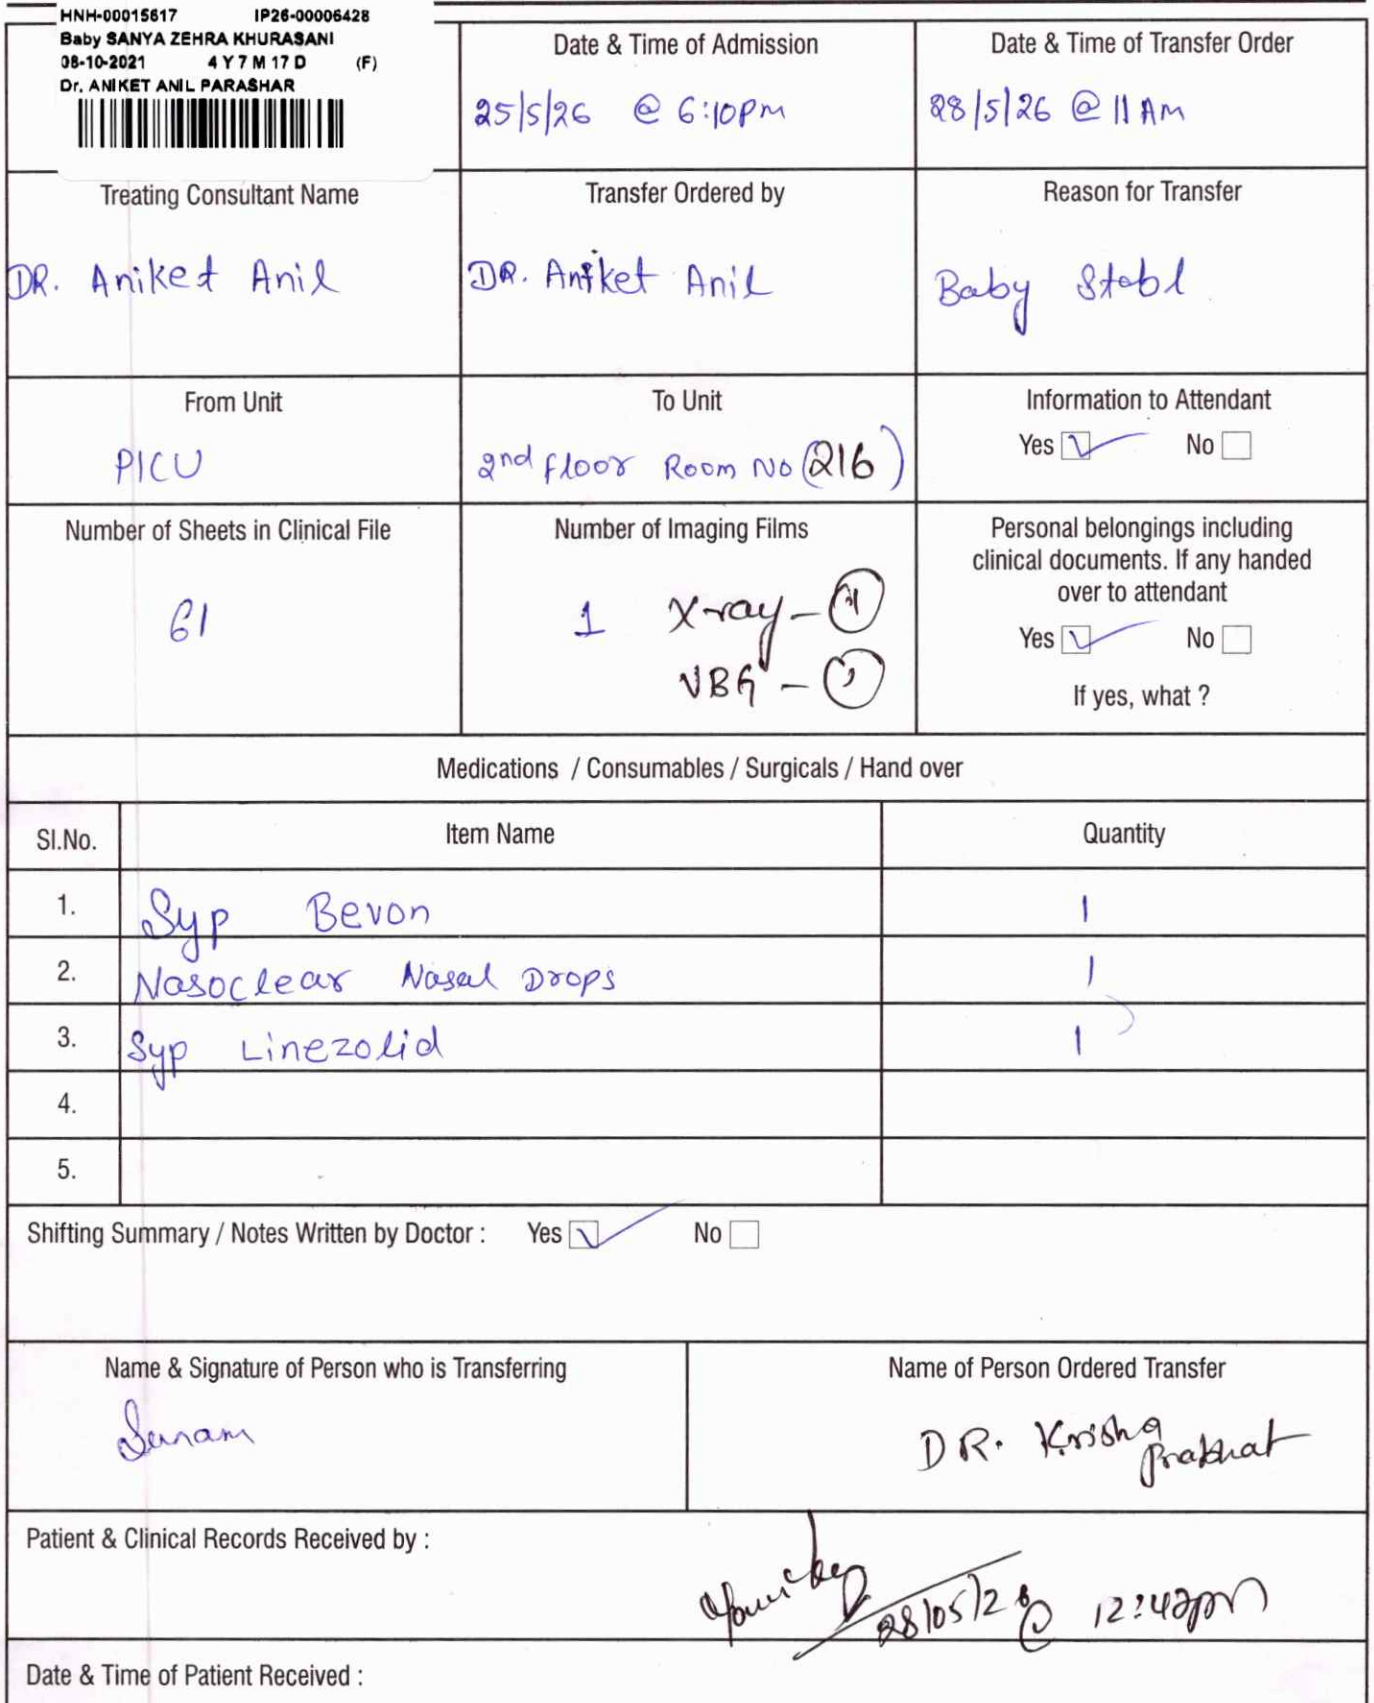 HNH-00015617 IP26-00006428
Baby SANYA ZEHRA KHURASANI
08-10-2021 4 Y 7 M 17 D (F)
Dr. ANIKET ANIL PARASHAR
Date & Time of Admission
25/5/26 @ 6:10pm
Date & Time of Transfer Order
28/5/26 @ 11 AM
Treating Consultant Name
DR. Aniket Anil
Transfer Ordered by
DR. Aniket Anil
Reason for Transfer
Baby Stabl
From Unit
PICU
To Unit
2nd floor Room No (216)
Information to Attendant
Yes No
Number of Sheets in Clinical File
61
Number of Imaging Films
1 X-ray - 1
VBG -
Personal belongings including
clinical documents. If any handed
over to attendant
Yes No
If yes, what ?
Medications / Consumables / Surgicals / Hand over
Sl.No. Item Name Quantity
1. Syp Bevon 1
2. Nasoclear Nasal Drops 1
3. Syp Linezolid 1
4.
5.
Shifting Summary / Notes Written by Doctor : Yes No
Name & Signature of Person who is Transferring
Name of Person Ordered Transfer
DR. Krishna
Patient & Clinical Records Received by :
28/05/26 @ 12:42pm
Date & Time of Patient Received :